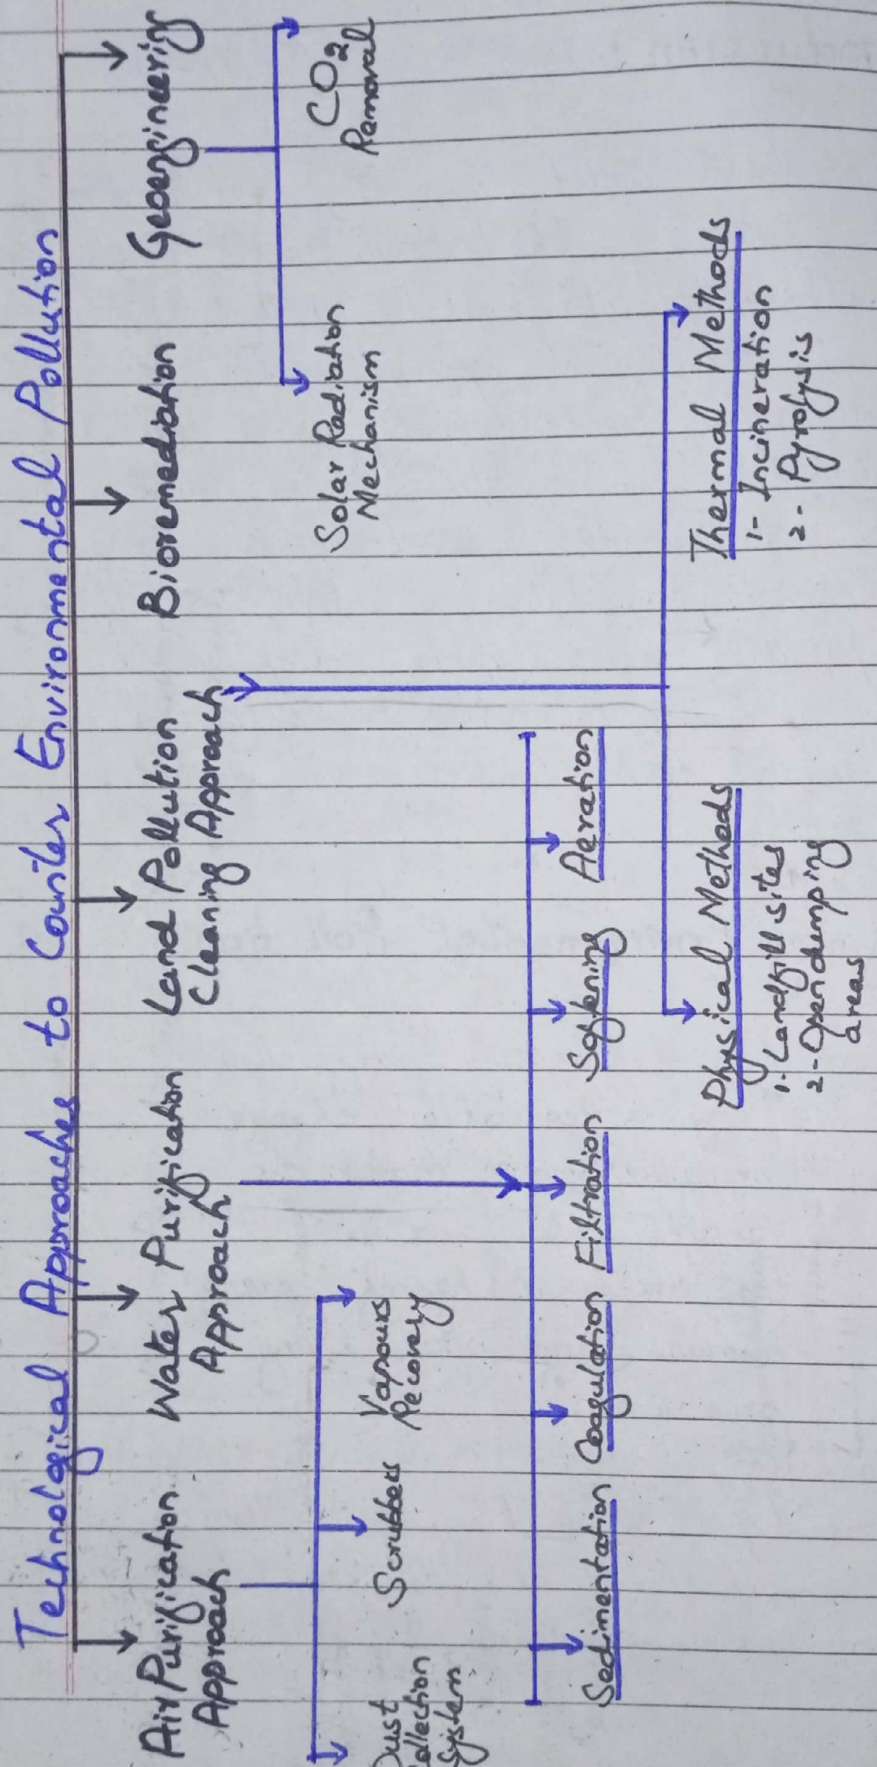 Technological Approaches to Counter Environmental Pollution
Air Purification
Approach
Water Purification
Approach
Land Pollution
Cleaning Approach
Bioremediation
Geoengineering
Dust
Collection
System
Scrubbers
Vapours
Recovery
Solar Radiation
Mechanism
CO2
Removal
Sedimentation
Coagulation
Filtration
Softening
Aeration
Physical Methods
1- Landfill sites
2- Open dumping
areas
Thermal Methods
1- Incineration
2- Pyrolysis